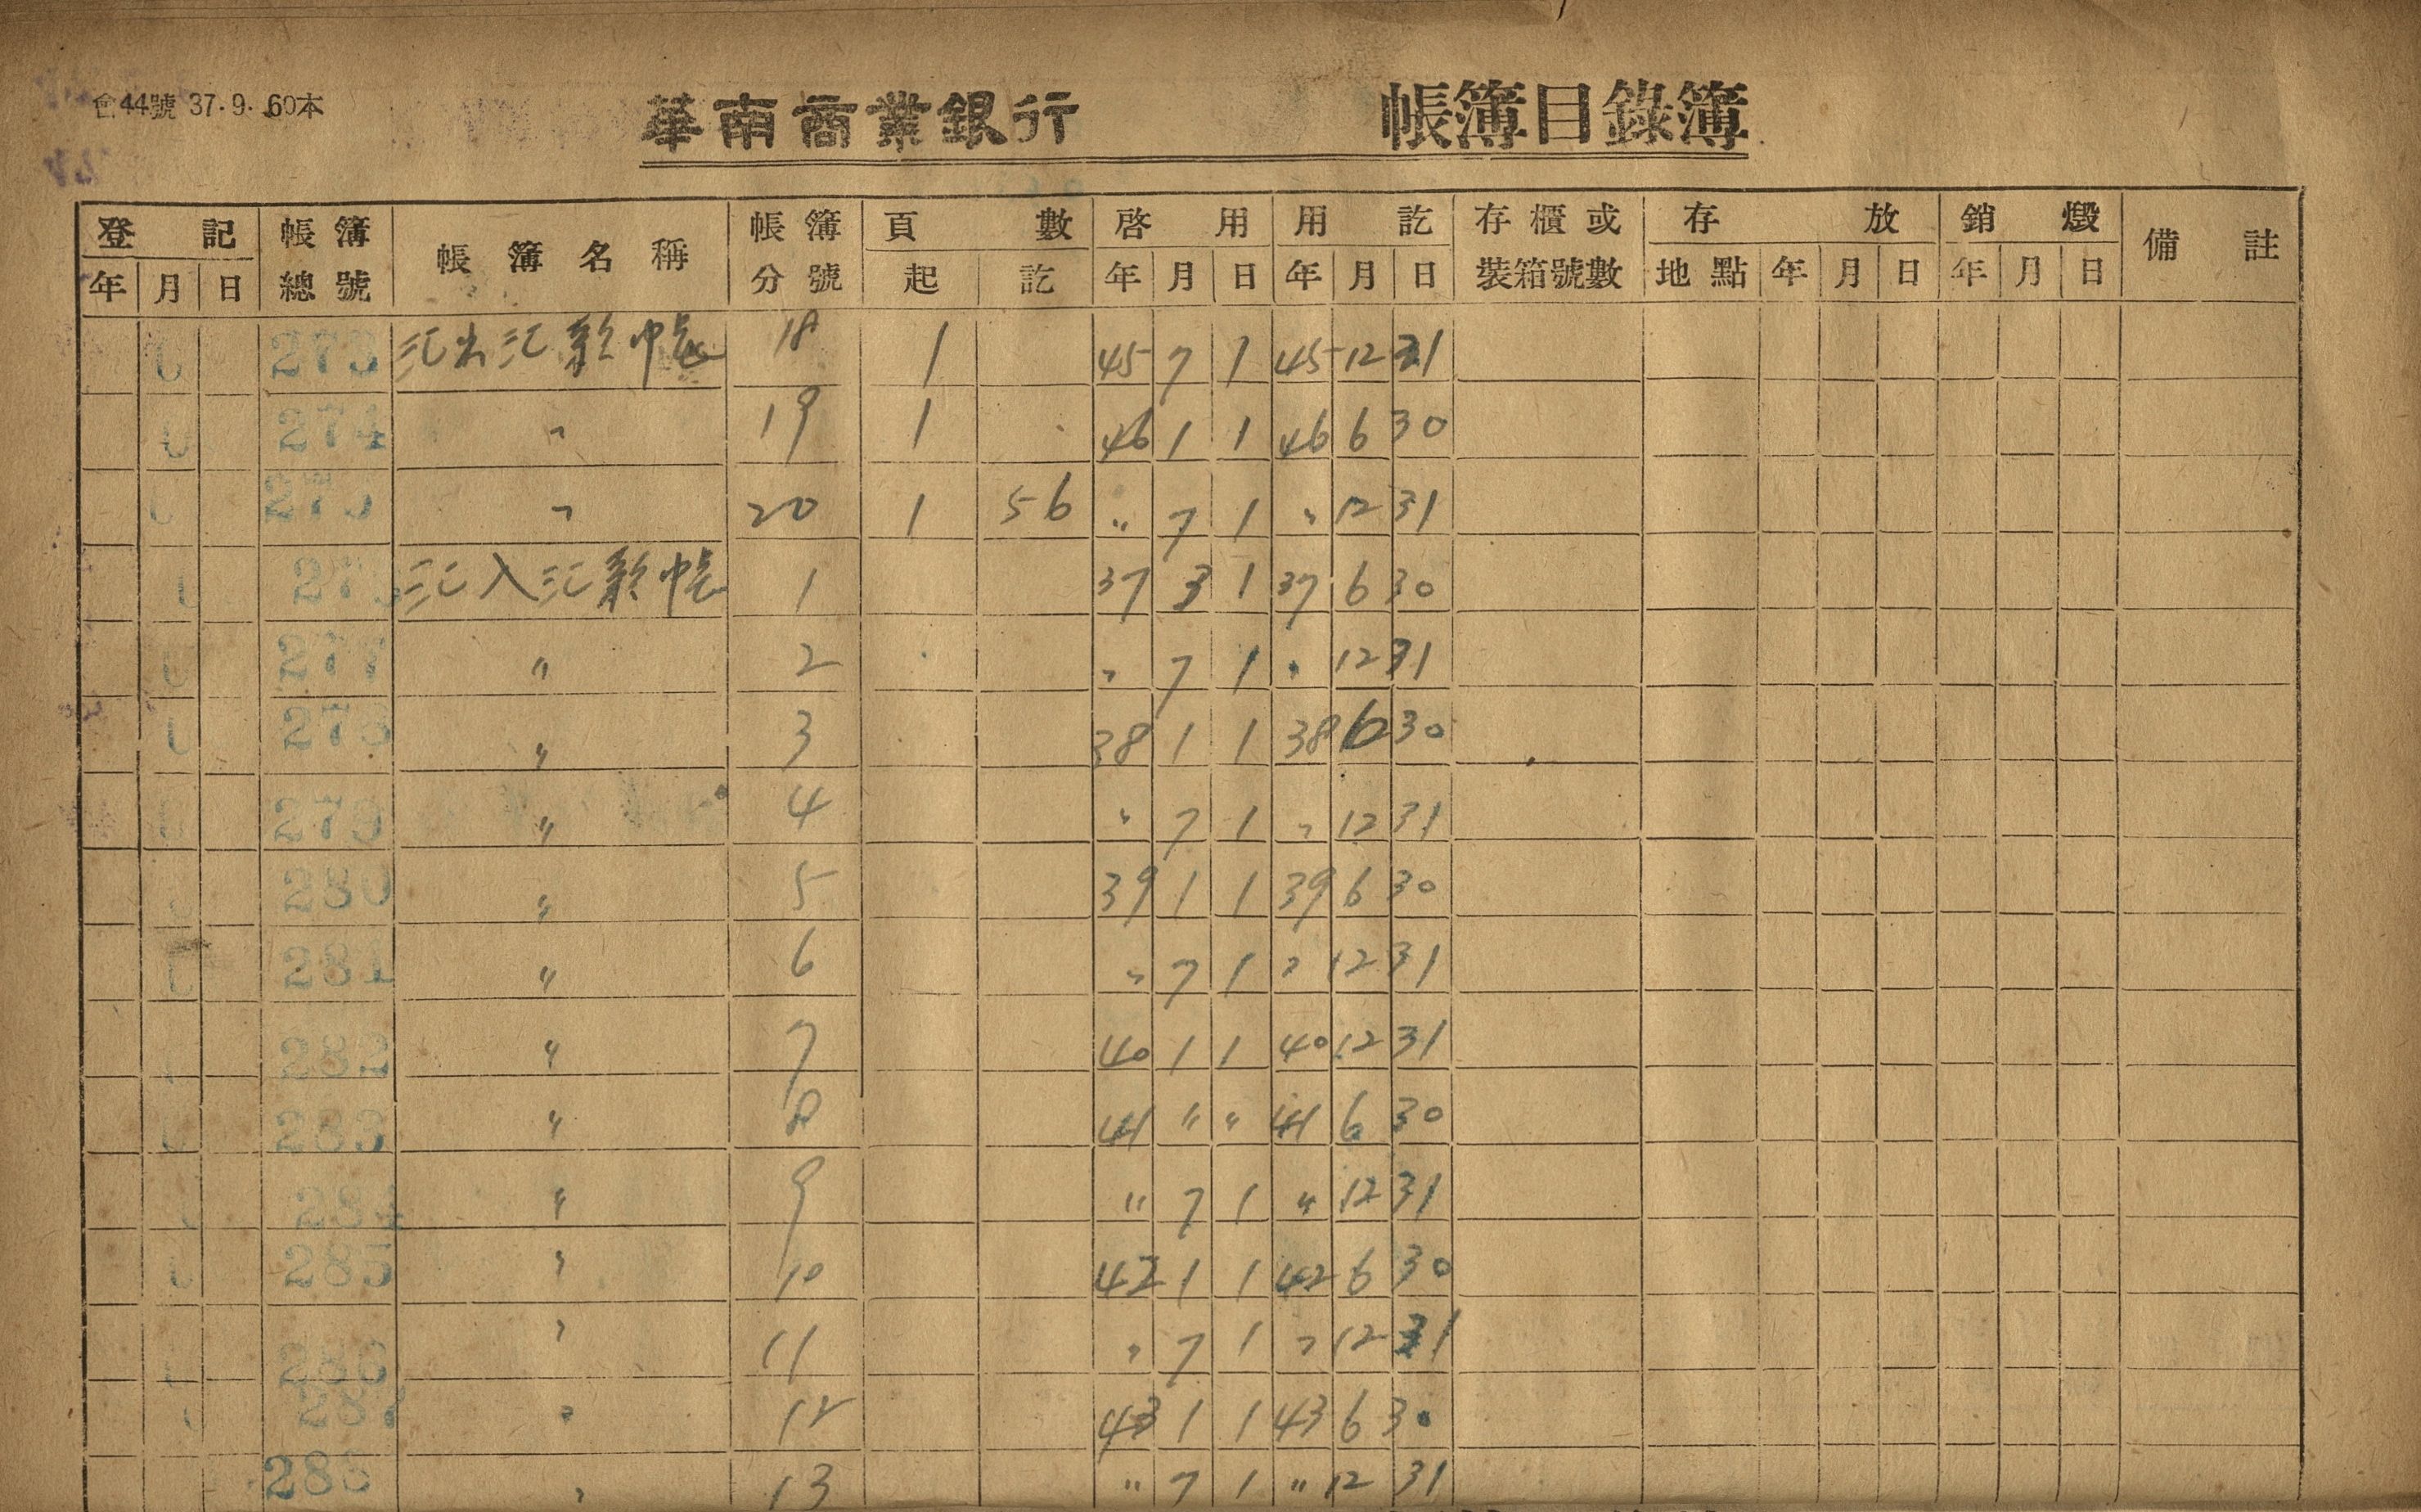 會44號 37.9. 60本
華南商業銀行 帳簿目錄簿
登記 帳簿總號 帳簿名稱 帳簿分號 頁數 啓用 用訖 存櫃或裝箱號數 存放 銷燬 備註
年 月 日 起 訖 年 月 日 年 月 日 地點 年 月 日 年 月 日
273 汇出汇款帳 18 1 45 7 1 45 12 31
274 〃 19 1 46 1 1 46 6 30
275 〃 20 1 56 〃 7 1 〃 12 31
27 汇入汇款帳 1 37 3 1 37 6 30
277 〃 2 〃 7 1 〃 12 31
278 〃 3 38 1 1 38 6 30
279 〃 4 〃 7 1 〃 12 31
280 〃 5 39 1 1 39 6 30
281 〃 6 〃 7 1 〃 12 31
282 〃 7 40 1 1 40 12 31
283 〃 8 41 〃 〃 41 6 30
284 〃 9 〃 7 1 〃 12 31
285 〃 10 42 1 1 42 6 30
286 〃 11 〃 7 1 〃 12 31
287 〃 12 43 1 1 43 6 30
288 〃 13 〃 7 1 〃 12 31